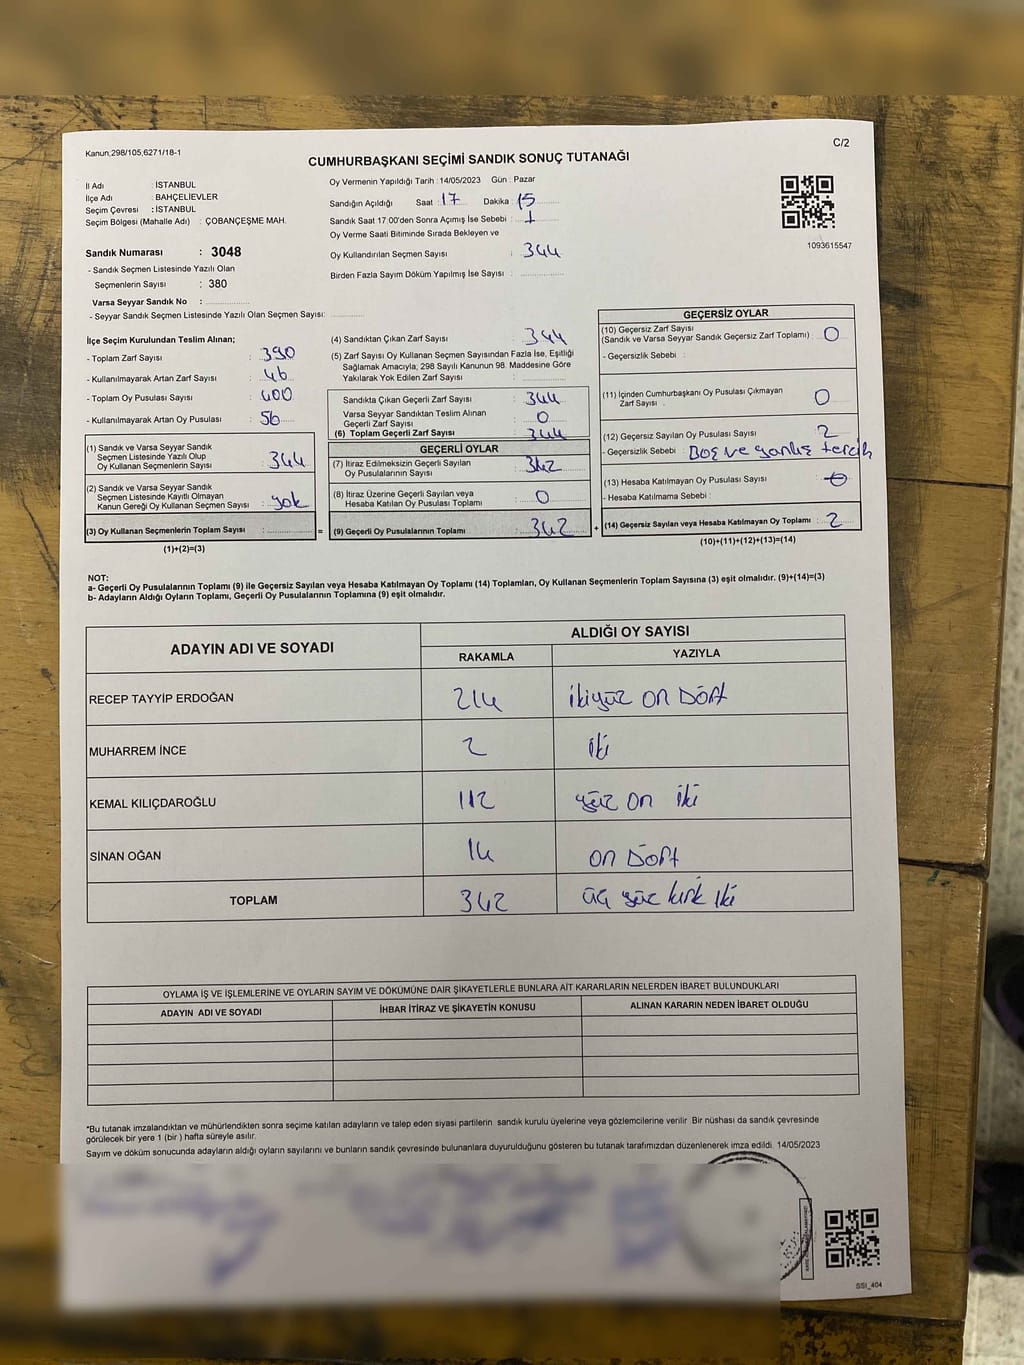 Kanun;298/105,6271/18-1
C/2
CUMHURBAŞKANI SEÇİMİ SANDIK SONUÇ TUTANAĞI
İl Adı : İSTANBUL
İlçe Adı : BAHÇELİEVLER
Seçim Çevresi : İSTANBUL
Seçim Bölgesi (Mahalle Adı) : ÇOBANÇEŞME MAH.
Sandık Numarası : 3048
- Sandık Seçmen Listesinde Yazılı Olan
Seçmenlerin Sayısı : 380
Varsa Seyyar Sandık No :
- Seyyar Sandık Seçmen Listesinde Yazılı Olan Seçmen Sayısı:
Oy Vermenin Yapıldığı Tarih : 14/05/2023 Gün : Pazar
Sandığın Açıldığı Saat : 17 Dakika : 15
Sandık Saat 17:00'den Sonra Açımış İse Sebebi :
Oy Verme Saati Bitiminde Sırada Bekleyen ve
Oy Kullandırılan Seçmen Sayısı : 344
Birden Fazla Sayım Döküm Yapılmış İse Sayısı :
1093615547
İlçe Seçim Kurulundan Teslim Alınan;
- Toplam Zarf Sayısı : 390
- Kullanılmayarak Artan Zarf Sayısı : 46
- Toplam Oy Pusulası Sayısı : 400
- Kullanılmayarak Artan Oy Pusulası : 56
(1) Sandık ve Varsa Seyyar Sandık
Seçmen Listesinde Yazılı Olup
Oy Kullanan Seçmenlerin Sayısı : 344
(2) Sandık ve Varsa Seyyar Sandık
Seçmen Listesinde Kayıtlı Olmayan
Kanun Gereği Oy Kullanan Seçmen Sayısı : yok
(3) Oy Kullanan Seçmenlerin Toplam Sayısı :
=
(1)+(2)=(3)
(4) Sandıktan Çıkan Zarf Sayısı : 344
(5) Zarf Sayısı Oy Kullanan Seçmen Sayısından Fazla İse, Eşitliği
Sağlamak Amacıyla; 298 Sayılı Kanunun 98. Maddesine Göre
Yakılarak Yok Edilen Zarf Sayısı :
Sandıkta Çıkan Geçerli Zarf Sayısı : 344
Varsa Seyyar Sandıktan Teslim Alınan
Geçerli Zarf Sayısı : 0
(6) Toplam Geçerli Zarf Sayısı : 344
GEÇERLİ OYLAR
(7) İtiraz Edilmeksizin Geçerli Sayılan
Oy Pusulalarının Sayısı : 342
(8) İtiraz Üzerine Geçerli Sayılan veya
Hesaba Katılan Oy Pusulası Toplamı : 0
(9) Geçerli Oy Pusulalarının Toplamı : 342
+
GEÇERSİZ OYLAR
(10) Geçersiz Zarf Sayısı
(Sandık ve Varsa Seyyar Sandık Geçersiz Zarf Toplamı) : 0
- Geçersizlik Sebebi :
(11) İçinden Cumhurbaşkanı Oy Pusulası Çıkmayan
Zarf Sayısı : 0
(12) Geçersiz Sayılan Oy Pusulası Sayısı : 2
- Geçersizlik Sebebi : Boş ve yanlış tercih
(13) Hesaba Katılmayan Oy Pusulası Sayısı : 0
- Hesaba Katılmama Sebebi :
(14) Geçersiz Sayılan veya Hesaba Katılmayan Oy Toplamı : 2
(10)+(11)+(12)+(13)=(14)
NOT:
a- Geçerli Oy Pusulalarının Toplamı (9) ile Geçersiz Sayılan veya Hesaba Katılmayan Oy Toplamı (14) Toplamları, Oy Kullanan Seçmenlerin Toplam Sayısına (3) eşit olmalıdır. (9)+(14)=(3)
b- Adayların Aldığı Oyların Toplamı, Geçerli Oy Pusulalarının Toplamına (9) eşit olmalıdır.
ADAYIN ADI VE SOYADI
ALDIĞI OY SAYISI
RAKAMLA YAZIYLA
RECEP TAYYİP ERDOĞAN 214 ikiyüz on Dört
MUHARREM İNCE 2 iki
KEMAL KILIÇDAROĞLU 112 yüz on iki
SİNAN OĞAN 14 on Dört
TOPLAM 342 üç yüz kırk iki
OYLAMA İŞ VE İŞLEMLERİNE VE OYLARIN SAYIM VE DÖKÜMÜNE DAİR ŞİKAYETLERLE BUNLARA AİT KARARLARIN NELERDEN İBARET BULUNDUKLARI
ADAYIN ADI VE SOYADI İHBAR İTİRAZ VE ŞİKAYETİN KONUSU ALINAN KARARIN NEDEN İBARET OLDUĞU
*Bu tutanak imzalandıktan ve mühürlendikten sonra seçime katılan adayların ve talep eden siyasi partilerin sandık kurulu üyelerine veya gözlemcilerine verilir. Bir nüshası da sandık çevresinde
görülecek bir yere 1 (bir ) hafta süreyle asılır.
Sayım ve döküm sonucunda adayların aldığı oyların sayılarını ve bunların sandık çevresinde bulunanlara duyurulduğunu gösteren bu tutanak tarafımızdan düzenlenerek imza edildi. 14/05/2023
SSI_404